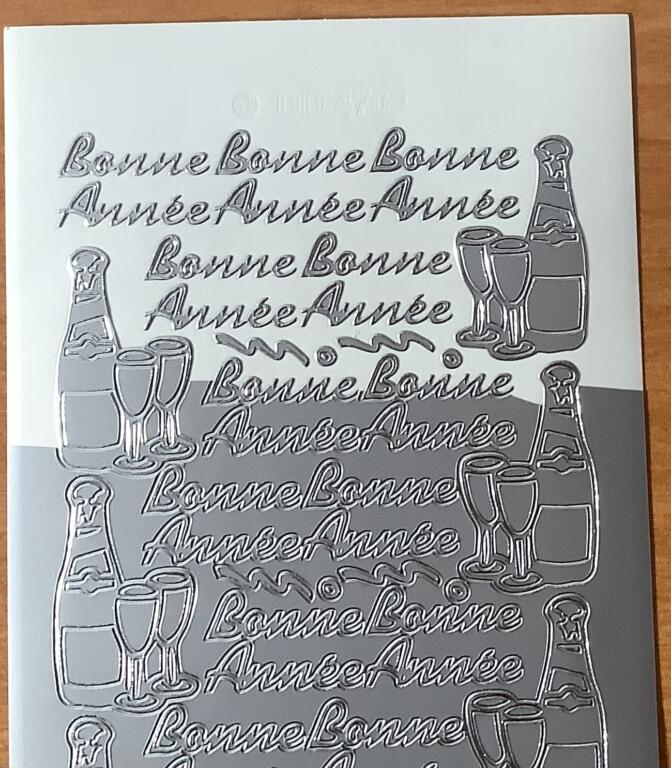 DD 4702
Bonne Bonne Bonne
Année Année Année
Bonne Bonne
Année Année
Bonne Bonne
Année Année
Bonne Bonne
Année Année
Bonne Bonne
Année Année
Bonne Bonne